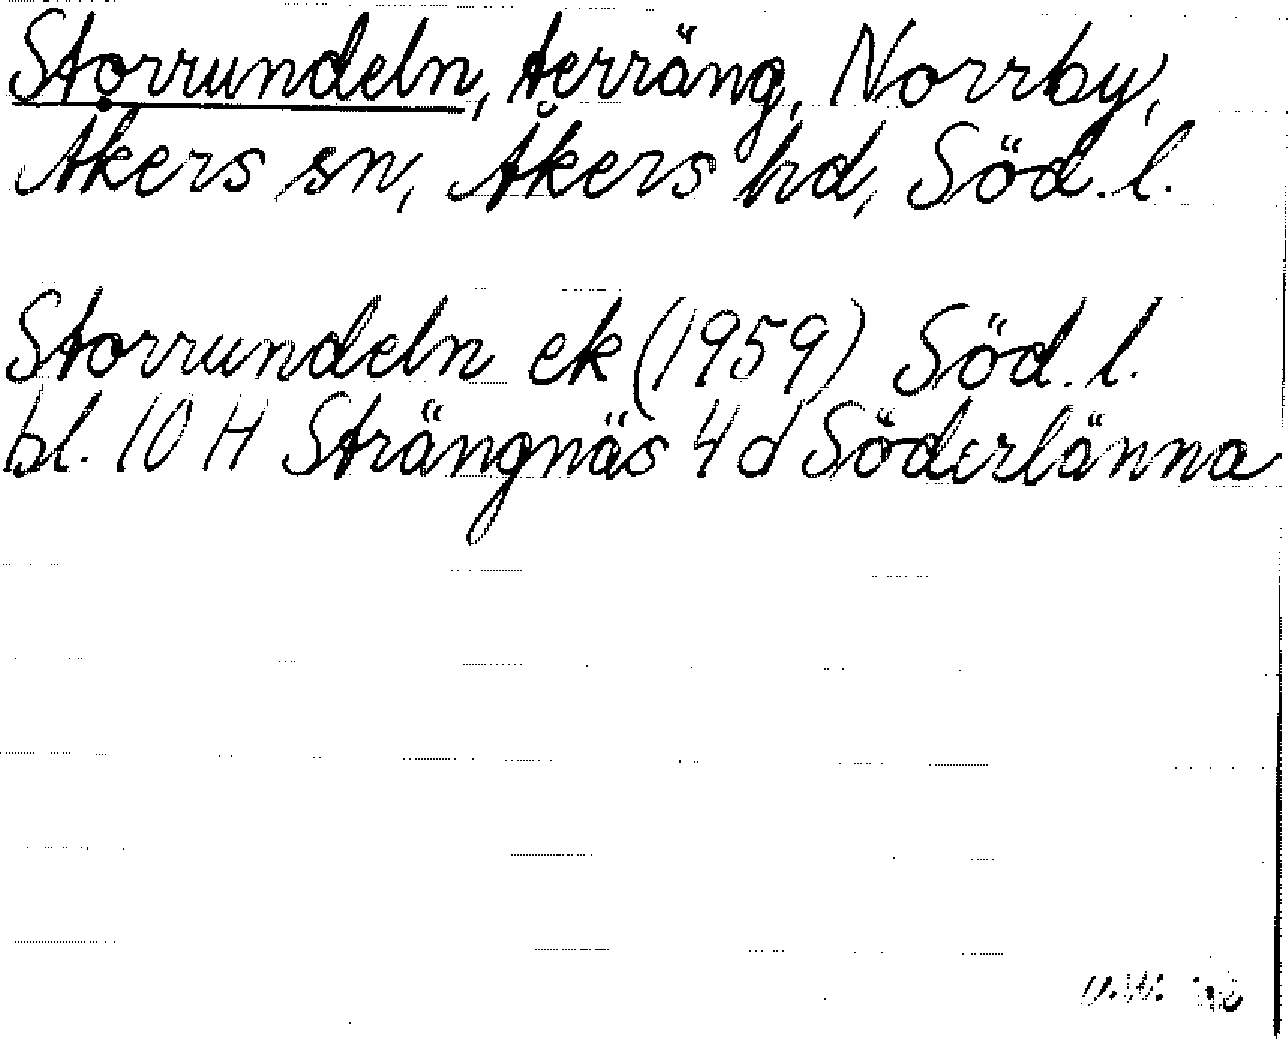 Storrundeln, terräng, Norrby,
Åkers sn, Åkers hd, Söd. l.
Storrundeln ek (1959) Söd. l.
bl. 10 H Strängnäs 4 d Söderlänna